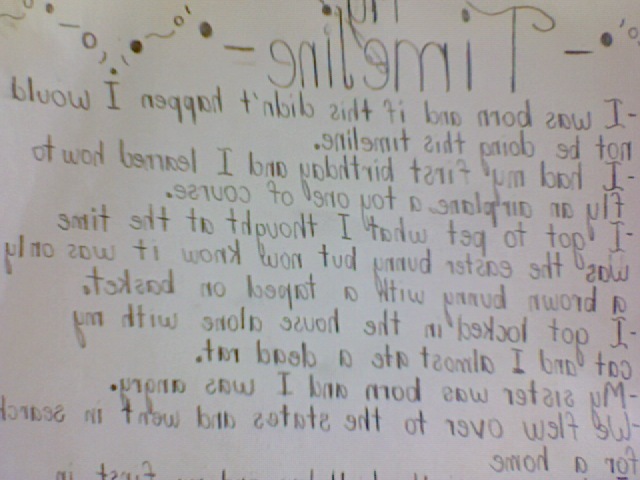 The
Timeline
-I was born and if this didn't happen I would
not be doing this timeline.
-I had my first birthday and I learned how to
fly an airplane, a toy one of course.
-I got to pet what I thought at the time
was the easter bunny but now know it was only
a brown bunny with a taped on basket.
-I got locked in the house alone with my
cat and I almost ate a dead rat.
-My sister was born and I was angry.
-We flew over to the states and went in search
for a home
first in